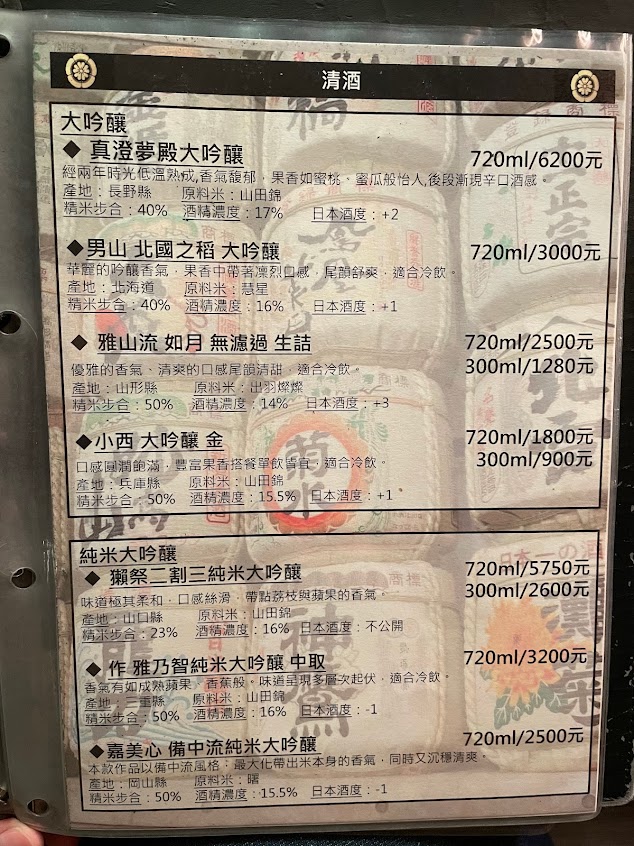 清酒
大吟釀
◆ 真澄夢殿大吟釀 720ml/6200元
經兩年時光低溫熟成,香氣馥郁，果香如蜜桃、蜜瓜般怡人,後段漸現辛口酒感。
產地：長野縣 原料米：山田錦
精米步合：40% 酒精濃度：17% 日本酒度：+2
◆男山 北國之稻 大吟釀 720ml/3000元
華麗的吟釀香氣，果香中帶著凜烈口感，尾韻舒爽，適合冷飲。
產地：北海道 原料米：慧星
精米步合：40% 酒精濃度：16% 日本酒度：+1
◆ 雅山流 如月 無濾過 生詰 720ml/2500元
300ml/1280元
優雅的香氣、清爽的口感尾韻清甜，適合冷飲。
產地：山形縣 原料米：出羽燦燦
精米步合：50% 酒精濃度：14% 日本酒度：+3
◆小西 大吟釀 金 720ml/1800元
300ml/900元
口感圓潤飽滿，豐富果香搭餐單飲皆宜，適合冷飲。
產地：兵庫縣 原料米：山田錦
精米步合：50% 酒精濃度：15.5% 日本酒度：+1
純米大吟釀
◆ 獺祭二割三純米大吟釀 720ml/5750元
300ml/2600元
味道極其柔和，口感絲滑，帶點荔枝與蘋果的香氣。
產地：山口縣 原料米：山田錦
精米步合：23% 酒精濃度：16% 日本酒度：不公開
◆作 雅乃智純米大吟釀 中取 720ml/3200元
香氣有如成熟蘋果、香蕉般。味道呈現多層次起伏，適合冷飲。
產地：三重縣 原料米：山田錦
精米步合：50% 酒精濃度：16% 日本酒度：-1
◆嘉美心 備中流純米大吟釀 720ml/2500元
本款作品以備中流風格：最大化帶出米本身的香氣，同時又沉穩清爽。
產地：岡山縣 原料米：曙
精米步合：50% 酒精濃度：15.5% 日本酒度：-1